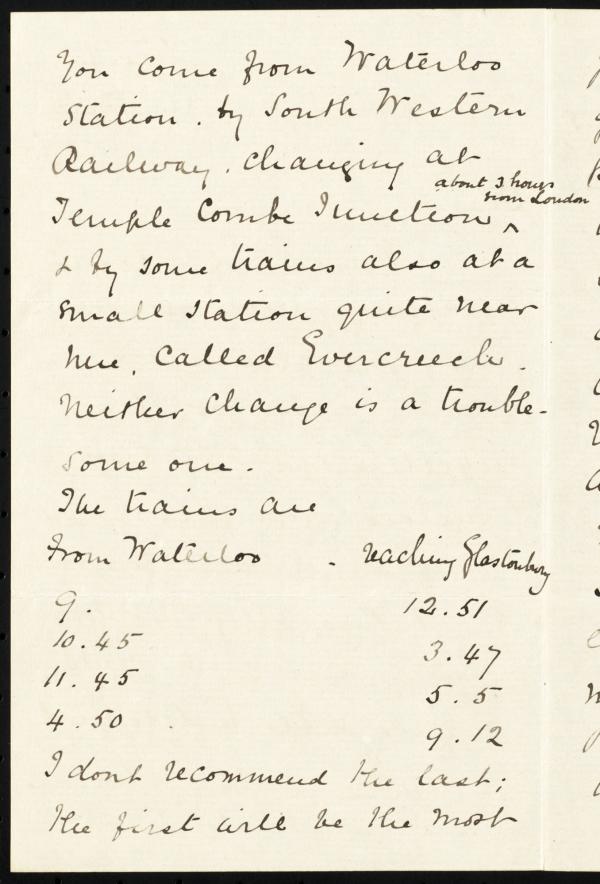 You come from Waterloo
Station. by South Western
Railway. changing at
about 3 hours
from London
Temple Combe Junction ^
& by some trains also at a
small station quite near
here, called Evercreech.
Neither change is a trouble-
some one.
The trains are
From Waterloo - reaching Glastonbury
9. 12.51
10.45 3.47
11.45 5.5
4.50 9.12
I dont recommend the last;
the first will be the most